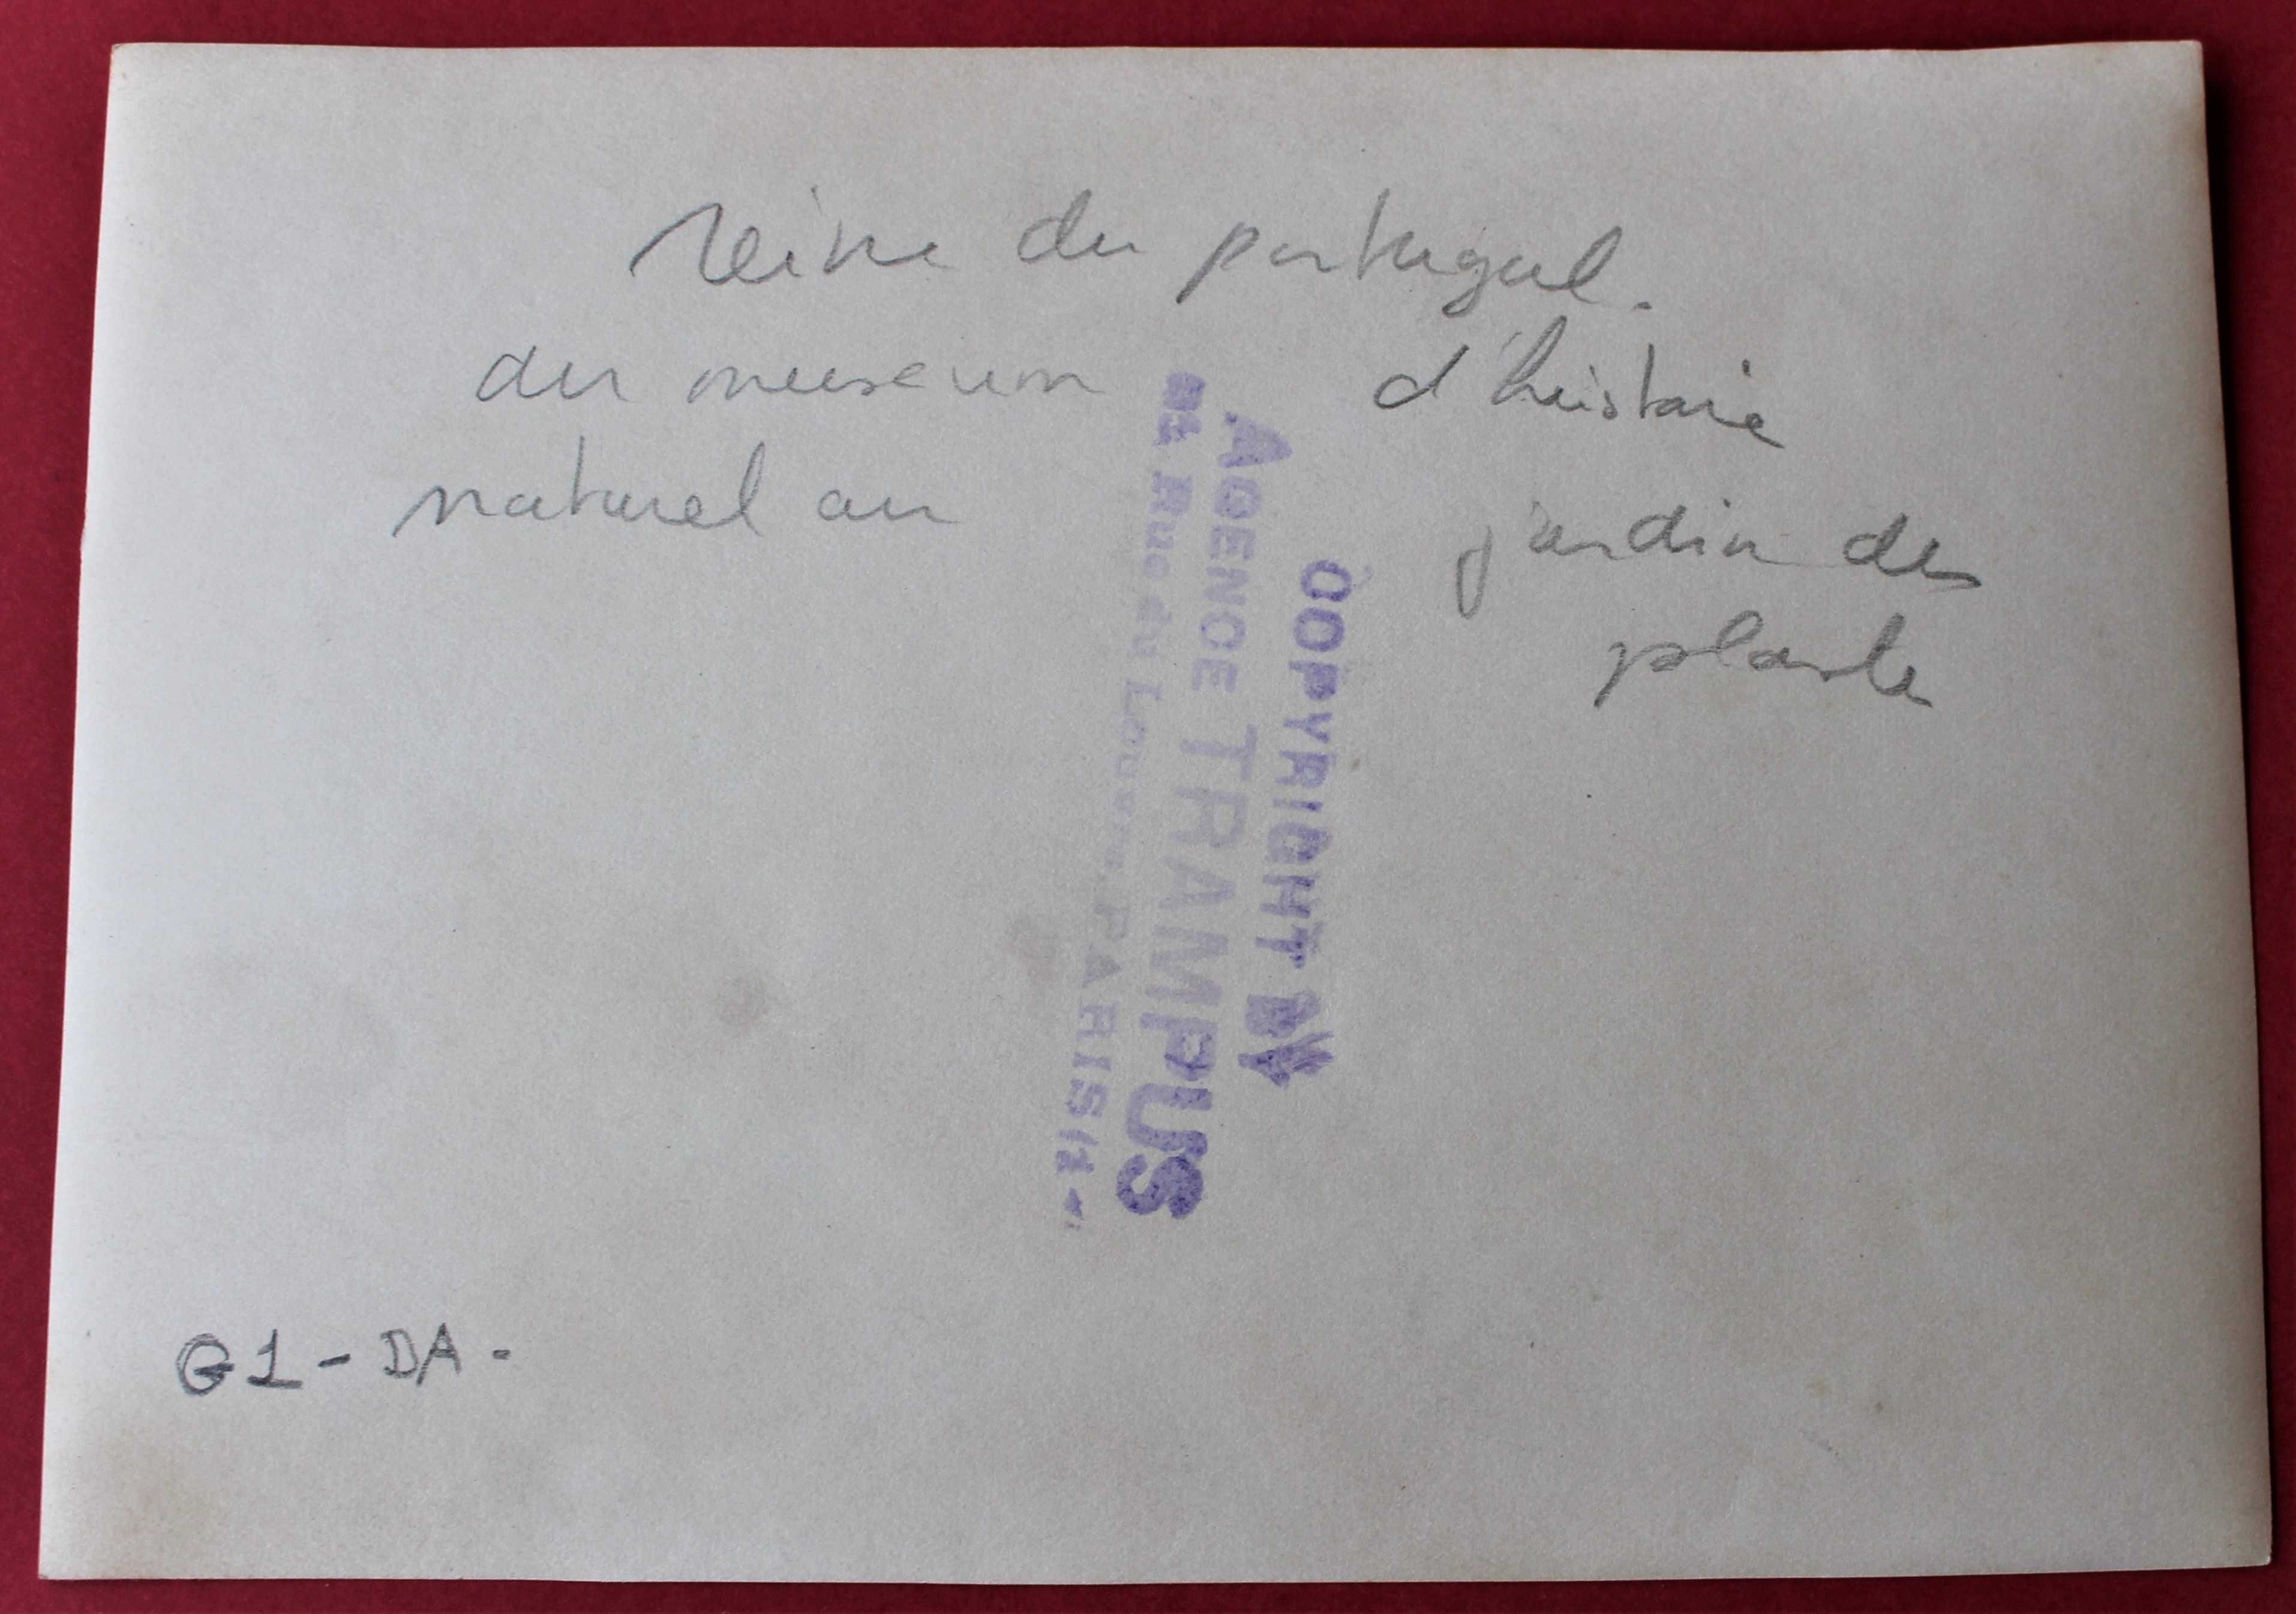 reine du portugal.
du museum d'histoire
naturel au jardin des
plante
COPYRIGHT BY
AGENCE TRAMPUS
Rue du Louvre, PARIS (1
G1-DA-